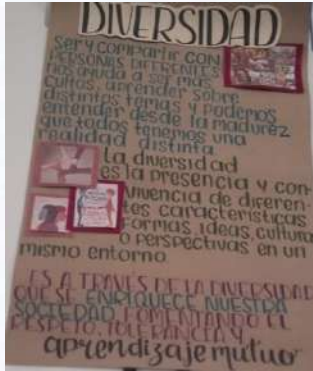 DIVERSIDAD
Ser y compartir con
personas diferentes
nos ayuda a ser más
cultos, aprender sobre
distintos temas y podemos
entender desde la madurez
que todos tenemos una
realidad distinta
La diversidad
es la presencia y con-
vivencia de diferen-
tes características
formas, ideas, cultura
o perspectivas en un
mismo entorno.
ES A TRAVÉS DE LA DIVERSIDAD
QUE SE ENRIQUECE NUESTRA
SOCIEDAD, FOMENTANDO EL
RESPETO, TOLERANCIA Y
aprendizaje mutuo